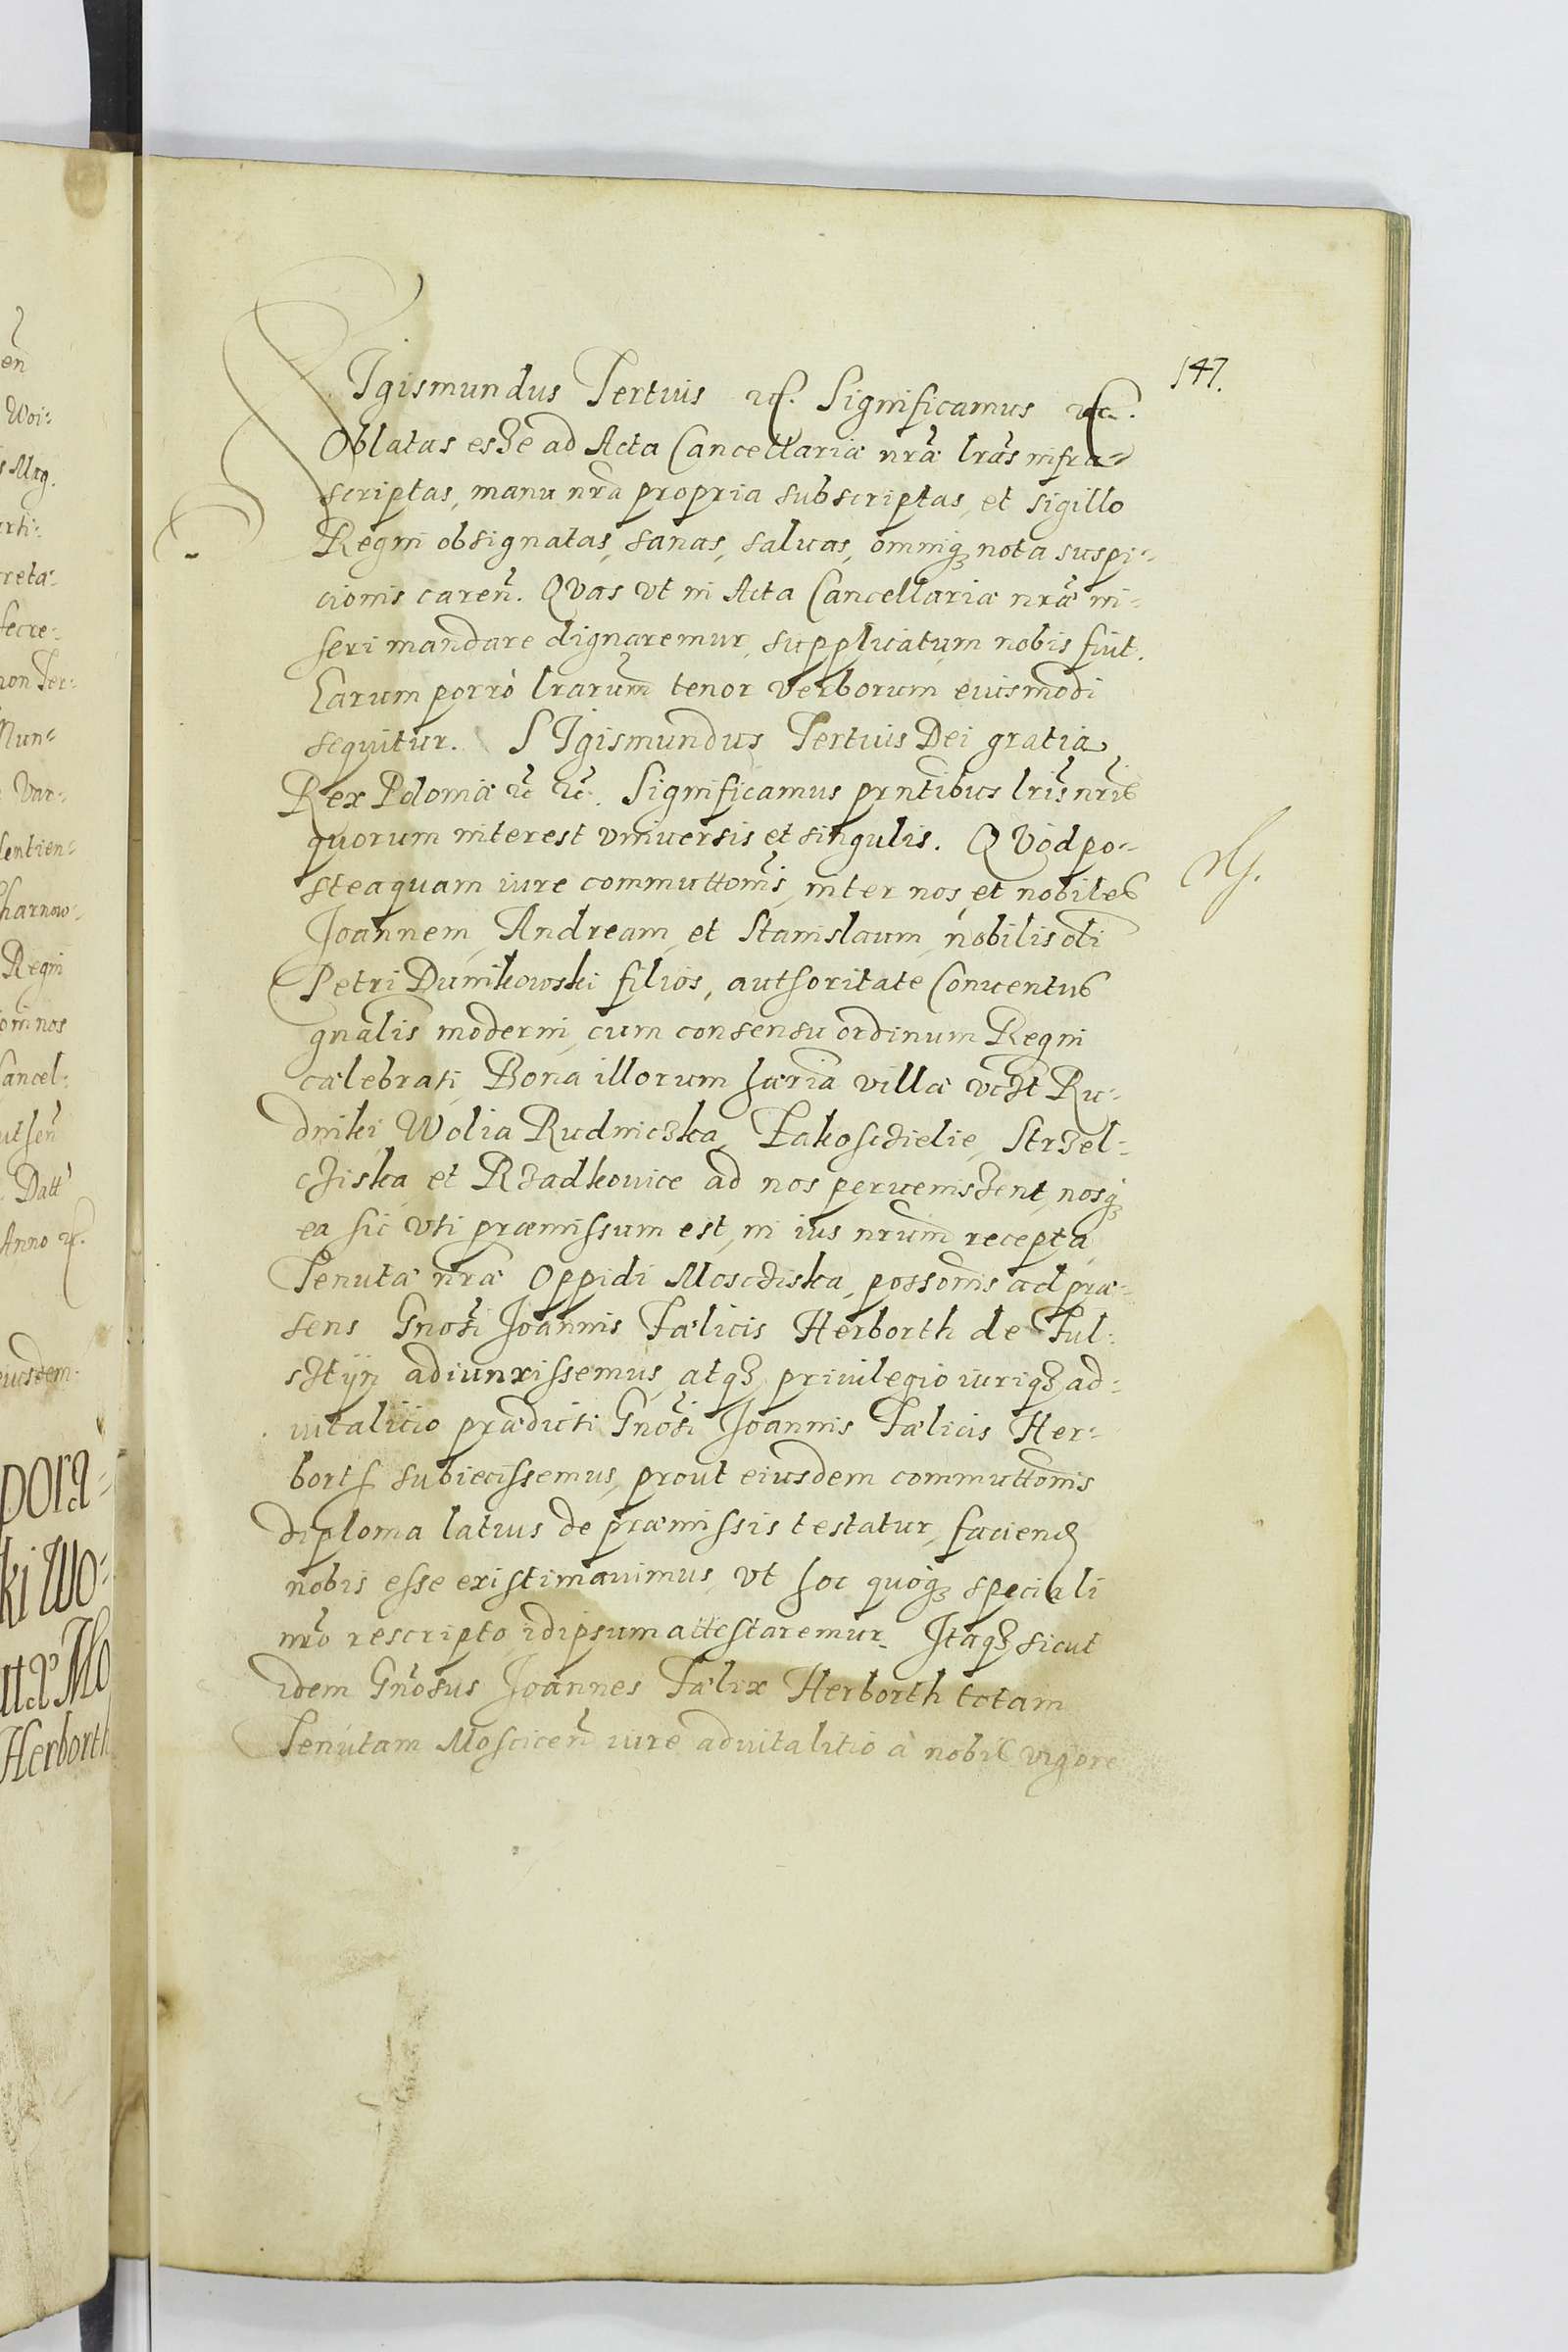 147.
SIgismundus Tertius etc. Significamus etc.
Oblatas esse ad Acta Cancellariæ nræ lras infra-
scriptas, manu nra propria subscriptas, et sigillo
Regni obsignatas, sanas, saluas, omniq3 nota suspi-
cionis caren. QVas vt in Acta Cancellariæ nræ in-
seri mandare dignaremur, supplicatum nobis fuit.
Earum porrò lrarum tenor verborum eiusmodi
sequitur. SIgismundus Tertius Dei gratia
Rex Poloniæ etc etc. Significamus prntibus lris nris
quorum interest vniuersis et singulis. QVòd po-
steaquam iure commuttonis, inter nos, et nobiles
Joannem, Andream, et Stanislaum, nobilis oli
Petri Dunikowski filios, authoritate Conuentus
gnalis moderni, cum consensu ordinum Regni
cælebrati, Bona illorum hæria villæ vczt Ru-
dniki, Wolia Rudniczka, Lakosczielie, Strzel-
cziska et Rzadkouice ad nos peruenissent, nosq3
ea sic vti præmissum est, in ius nrum recepta,
Tenutæ nræ Oppidi Moscziska, possonis ad præ-
sens Gnosi Joannis Fælicis Herborth de Ful-
sztyn adiunxissemus, atq3 priuilegio iuriq3 ad-
uitalicio prædicti Gnosi Joannis Fælicis Her-
borth subiecissemus, prout eiusdem commuttonis
diploma latius de præmissis testatur, faciend
nobis esse existimauimus, vt hoc quoq3 speciali
nro rescripto idipsum attestaremur. Itaq3 sicut
idem Gnosus Joannes Fælix Herborth totam
Tenutam Moscicen iure aduitalitio à nobis vigore